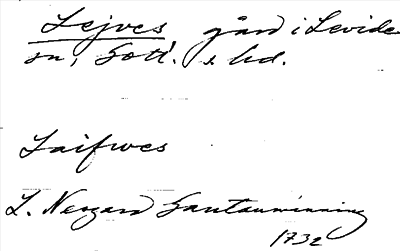 Lejves, gård i Levide
sn, Gotl. s. hd.
Laifwes
L. Nergard Gautauminning
1732